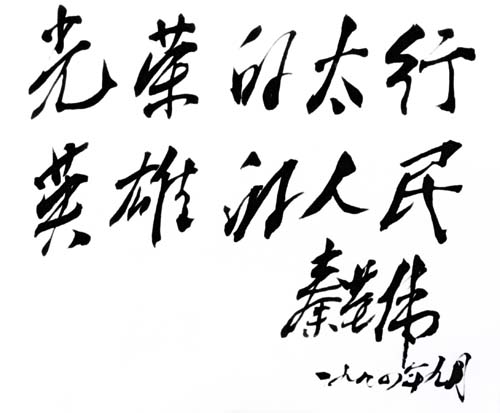 光荣的太行
英雄的人民
秦基伟
一九九〇年九月